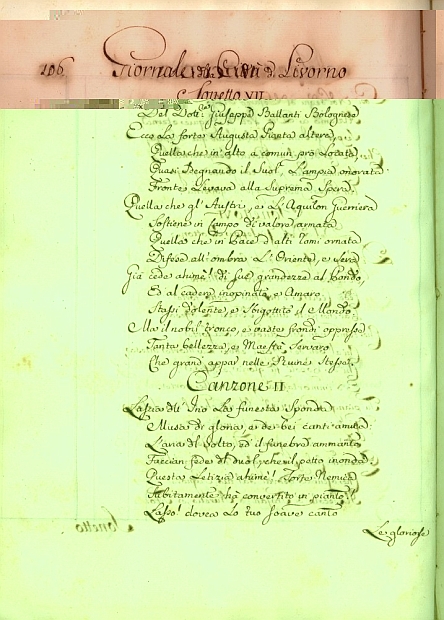 106 Giornale de Fatti di Livorno
Sonetto XII
Del Dott: Giuseppe Ballanti Bolognese
Ecco la forte Augusta Pianta altera
Quella che in alto a comun prò locata
Quasi sdegnando il suol, l'ampia onorata
Fronte levava alla suprema spera
Quella che gl'Austri, e l'Aquilon guerriera
Sostiene in campo di valore armata
Quella che in pace d'alti Pomi ornata
Difese all'ombra l'Oriente, e
Già cede ahimè! di sue grandezze al Pondo,
E al cader inopinato, e amaro
Stassi dolente, e sbigottito il Mondo
Ma il nobil tronco, e vaste frondi oppresse
Tanta bellezza, e Maestà servaro
Che grand appar nelle Ruine stesse
Canzone II
Lascia dell' la funesta sponda
Musa di gloria, e de bei canti amica
L'aria del volto, ed il funebre ammanto
Faccian fede del duol, che il petto inonda
Questa Letizia ahimè! sorte Nemica
Subitamente ha convertito in pianto
Lasso! dovea lo tuo soave canto
Le gloriose